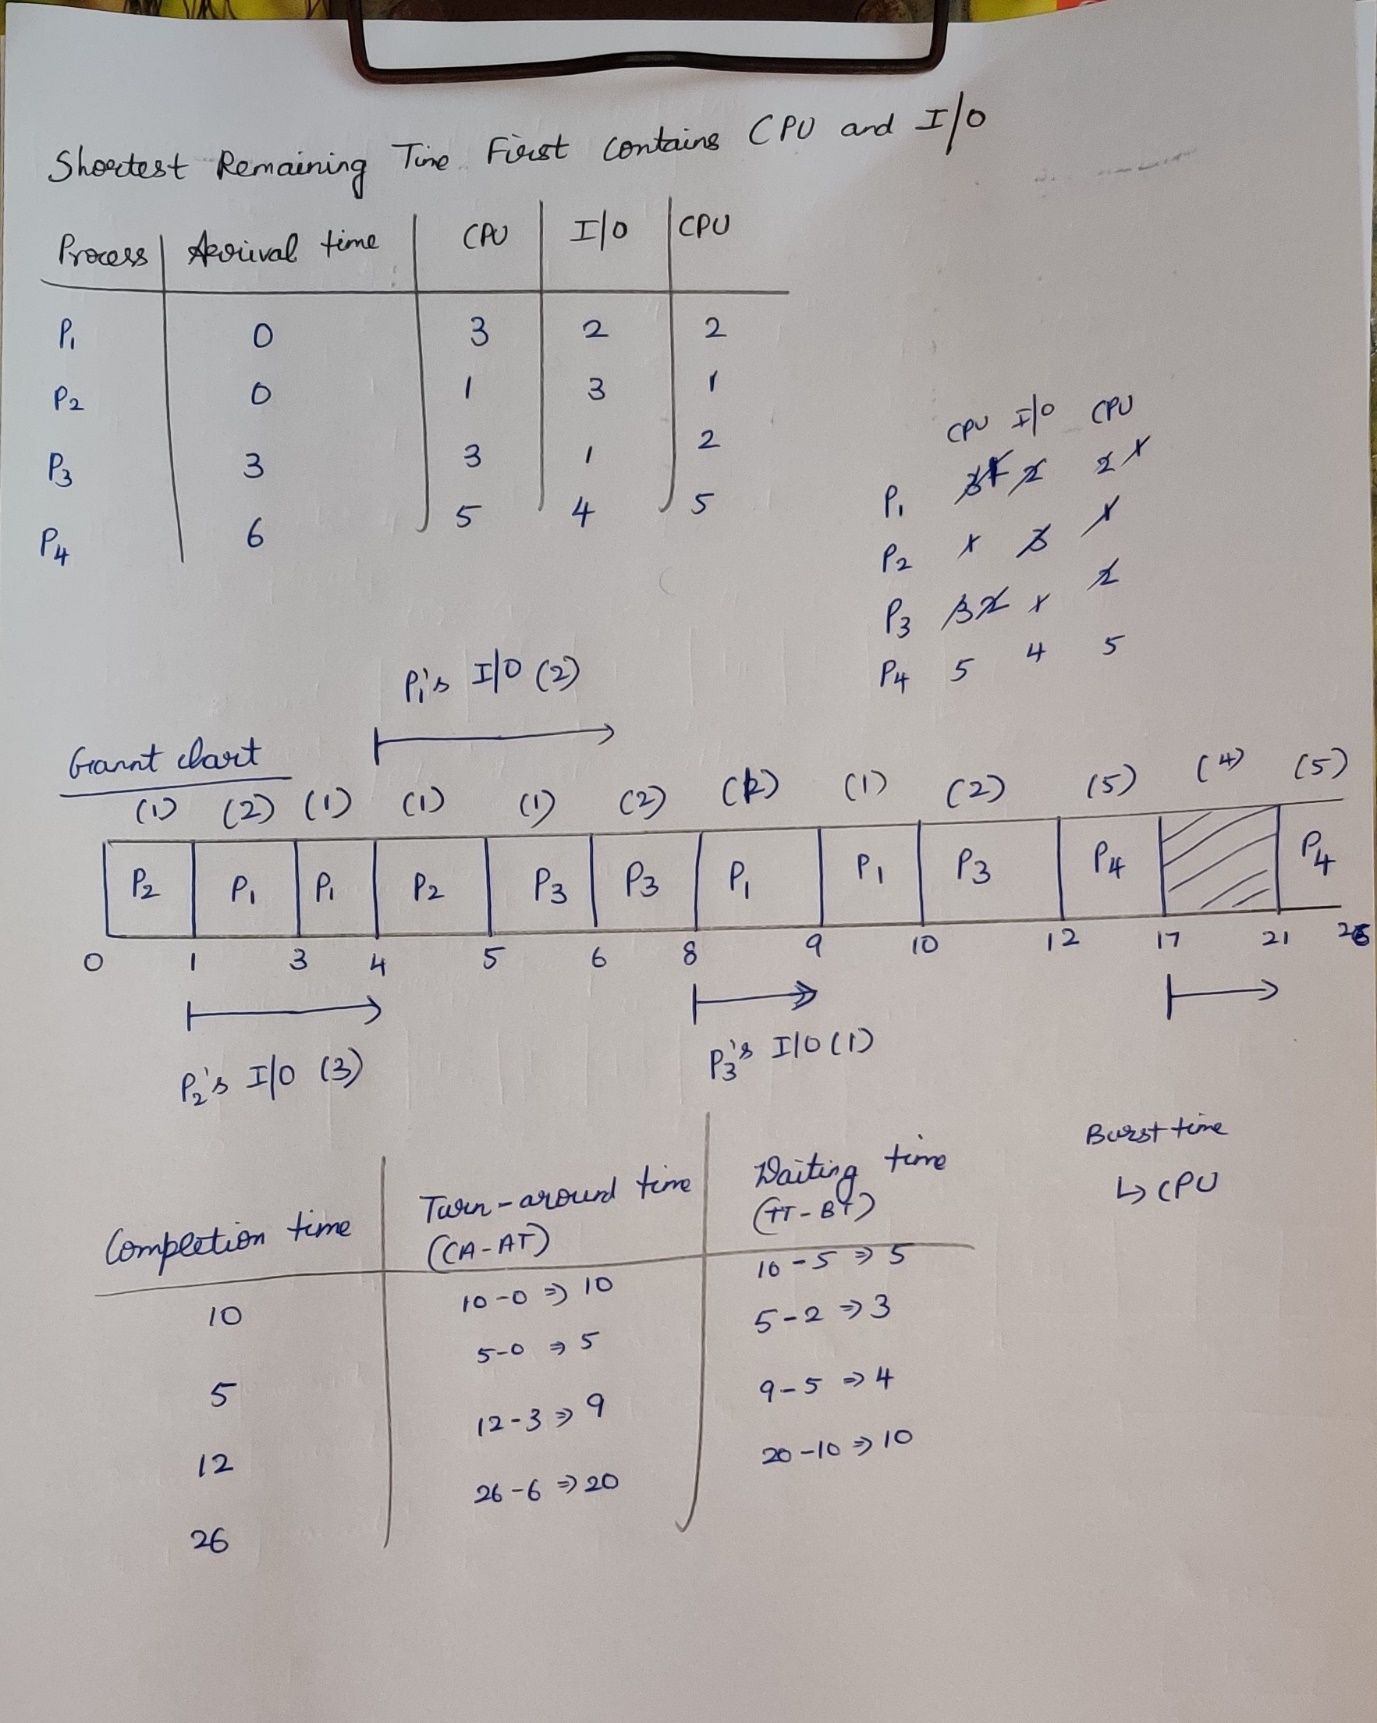 Shortest Remaining Time First contains CPU and I/O
Process Arrival time CPU I/O CPU
P1 0 3 2 2
P2 0 1 3 1
P3 3 3 1 2
P4 6 5 4 5
CPU I/O CPU
P1 3 1 2 2 1
P2 1 3 1
P3 3 2 1 2
P4 5 4 5
P1's I/O (2)
Grannt chart
(1) (2) (1) (1) (1) (2) (1) (2) (5) (4) (5)
P2 P1 P1 P2 P3 P3 P1 P1 P3 P4 P4
0 1 3 4 5 6 8 9 10 12 17 21 26
P2's I/O (3)
P3's I/O (1)
Burst time
↳ CPU
Completion time Turn-around time Waiting time
(CA-AT) (TT-BT)
10 10-0 ⇒ 10 10-5 ⇒ 5
5 5-0 ⇒ 5 5-2 ⇒ 3
12 12-3 ⇒ 9 9-5 ⇒ 4
26 26-6 ⇒ 20 20-10 ⇒ 10